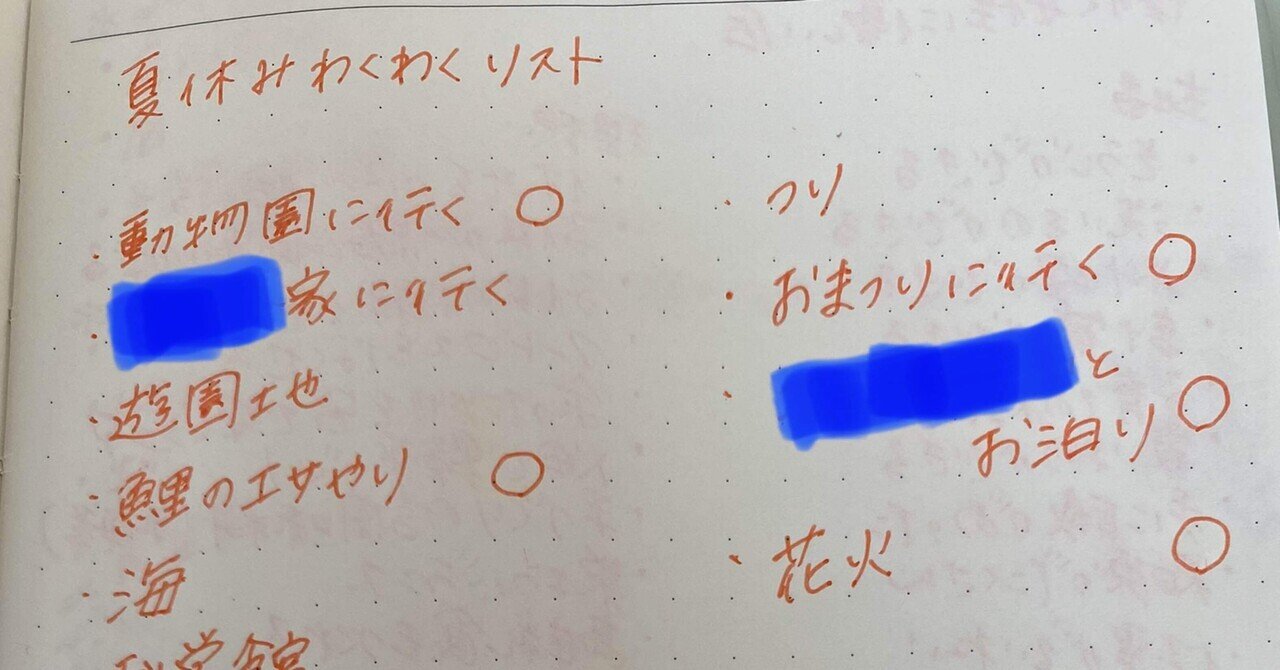 夏休みわくわくリスト
・動物園に行く ○
・家に行く
・遊園地
・鯉のエサやり ○
・海
・つり
・おまつりに行く ○
・と
お泊り ○
・花火 ○